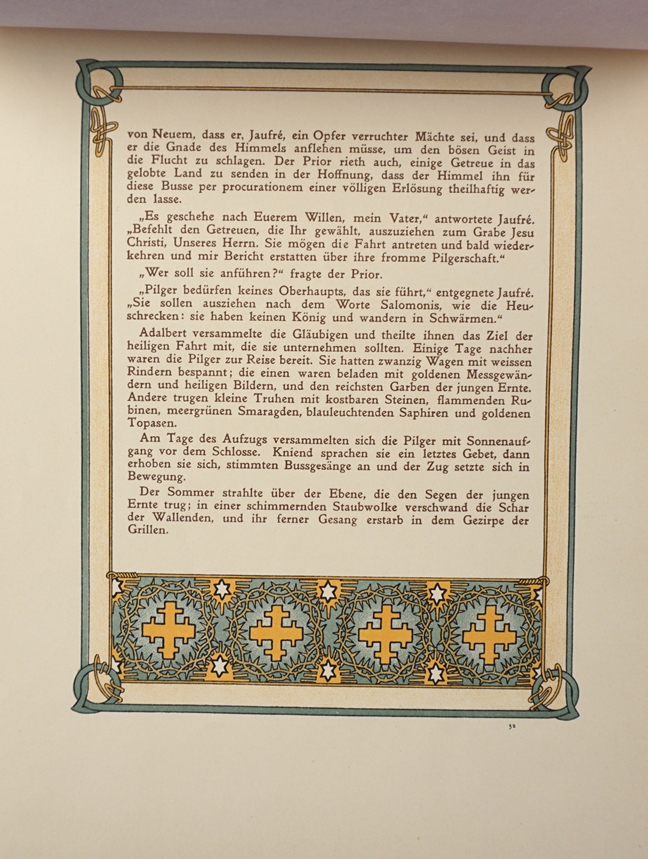 von Neuem, dass er, Jaufré, ein Opfer verruchter Mächte sei, und dass
er die Gnade des Himmels anflehen müsse, um den bösen Geist in
die Flucht zu schlagen. Der Prior rieth auch, einige Getreue in das
gelobte Land zu senden in der Hoffnung, dass der Himmel ihn für
diese Busse per procurationem einer völligen Erlösung theilhaftig wer-
den lasse.
„Es geschehe nach Euerem Willen, mein Vater,“ antwortete Jaufré.
„Befehlt den Getreuen, die Ihr gewählt, auszuziehen zum Grabe Jesu
Christi, Unseres Herrn. Sie mögen die Fahrt antreten und bald wieder-
kehren und mir Bericht erstatten über ihre fromme Pilgerschaft.“
„Wer soll sie anführen?“ fragte der Prior.
„Pilger bedürfen keines Oberhaupts, das sie führt,“ entgegnete Jaufré.
„Sie sollen ausziehen nach dem Worte Salomonis, wie die Heu-
schrecken: sie haben keinen König und wandern in Schwärmen.“
Adalbert versammelte die Gläubigen und theilte ihnen das Ziel der
heiligen Fahrt mit, die sie unternehmen sollten. Einige Tage nachher
waren die Pilger zur Reise bereit. Sie hatten zwanzig Wagen mit weissen
Rindern bespannt; die einen waren beladen mit goldenen Messgewän-
dern und heiligen Bildern, und den reichsten Garben der jungen Ernte.
Andere trugen kleine Truhen mit kostbaren Steinen, flammenden Ru-
binen, meergrünen Smaragden, blauleuchtenden Saphiren und goldenen
Topasen.
Am Tage des Aufzugs versammelten sich die Pilger mit Sonnenauf-
gang vor dem Schlosse. Kniend sprachen sie ein letztes Gebet, dann
erhoben sie sich, stimmten Bussgesänge an und der Zug setzte sich in
Bewegung.
Der Sommer strahlte über der Ebene, die den Segen der jungen
Ernte trug; in einer schimmernden Staubwolke verschwand die Schar
der Wallenden, und ihr ferner Gesang erstarb in dem Gezirpe der
Grillen.
52